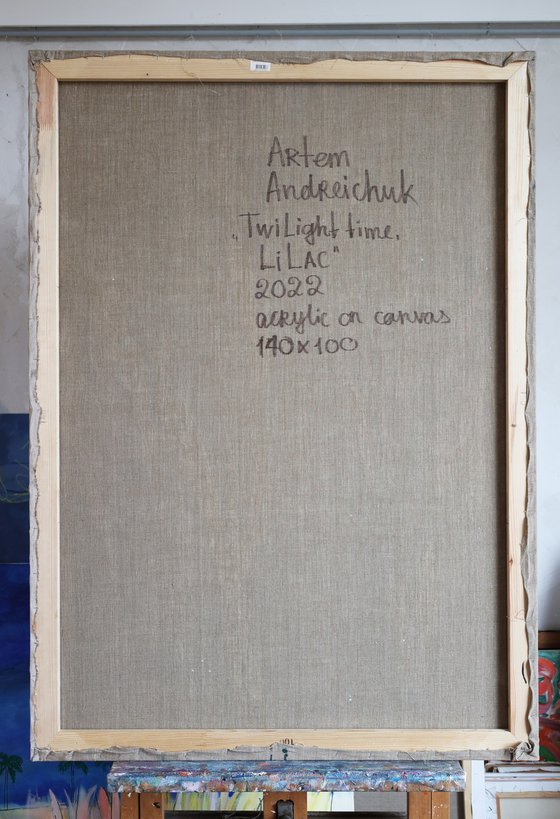 Artem
Andreichuk
„Twilight time.
Lilac"
2022
acrylic on canvas
140x100